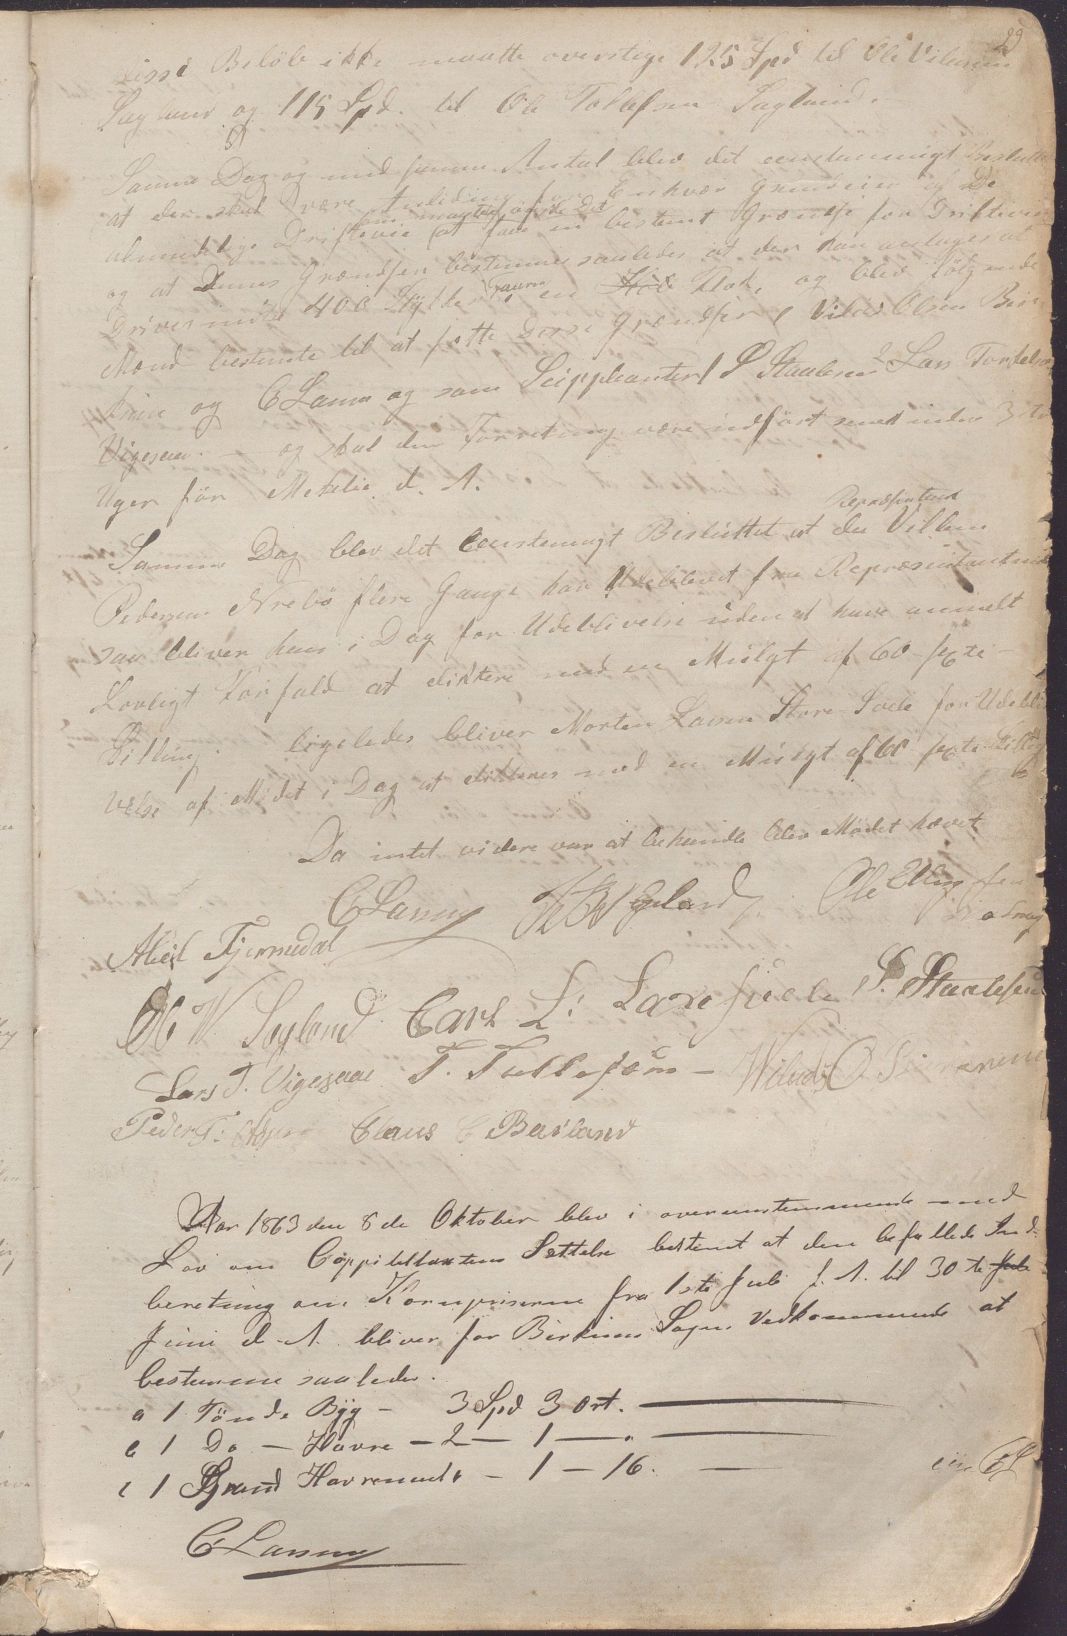 29
disse Beløb ikke maatte overstige 125 Spd til Ole Vilumsen
Sagland og 115 Spd. til Ole Tollefsen Sagland.
Samme Dag og med samme Antal blev det eenstemmigt Besluttet
at der skal være Anledning for Enhvær Grundeier af De
almindelige Driftevie at faae en bestemt Grændse for Driftevie
og at Denne Grændsen bestemmes saaledes at der kan antages at
Drives indtil 400 Stykker Faar en Flok, og blev følgende
Mænd bestemte til at sætte Disse Grændser 1 Vilads Olsen Bir-
krem og C Larsen og som Suppleanter 1 S Staalesen 2 Lars Torkelsen
Vigesaa. — og skal den Forretning være indført senest inden 3 de
Uger før Mikelie d. A.
Repræsentant
Samme Dag blev det Eenstemigt Besluttet at da Villum
Pedersen Nrebø flere Gange har Udeblevet fra Repræsentantmøde
saa bliver han i Dag for Udeblivelse uden at have anmelt
Lovligt Forfald at diktere med en Mulgt af 60 sexti-
Skilling. ligeledes bliver Morten Larsen Store Svele for Udebli
velse af Mødet i Dag at dikteres med en Mulgt af 60 sexti Skilling
Da intet videre var at behandle blev Mødet hævet
CLarsen Egeland Ole Ellingsen
Abiel Fjermedal
Ole W Sagland Carl L: Laxesvele S. Staalesen
Lars T. Vigesaae T. Tollefsen — Wilads O Birkrem
Peder T. Claus C Bauland
Aar 1863 den 8 de Oktober blev i overensstemmende med
Lov om Cappiteltaxtens Settelse bestemt at den befallede Ind-
beretning om Kornpriserne fra 1ste Juli f. A. til 30 te Juli
Juni d. A. bliver for Birkrem Sogns Vedkommende at
bestemme saaledes.
a 1 Tønde Byg — 3 Spd 3 Ort.
b 1 Do — Havre — 2 — 1 — .
c 1 Spand Havremalt — 1 — 16.
CLarsen